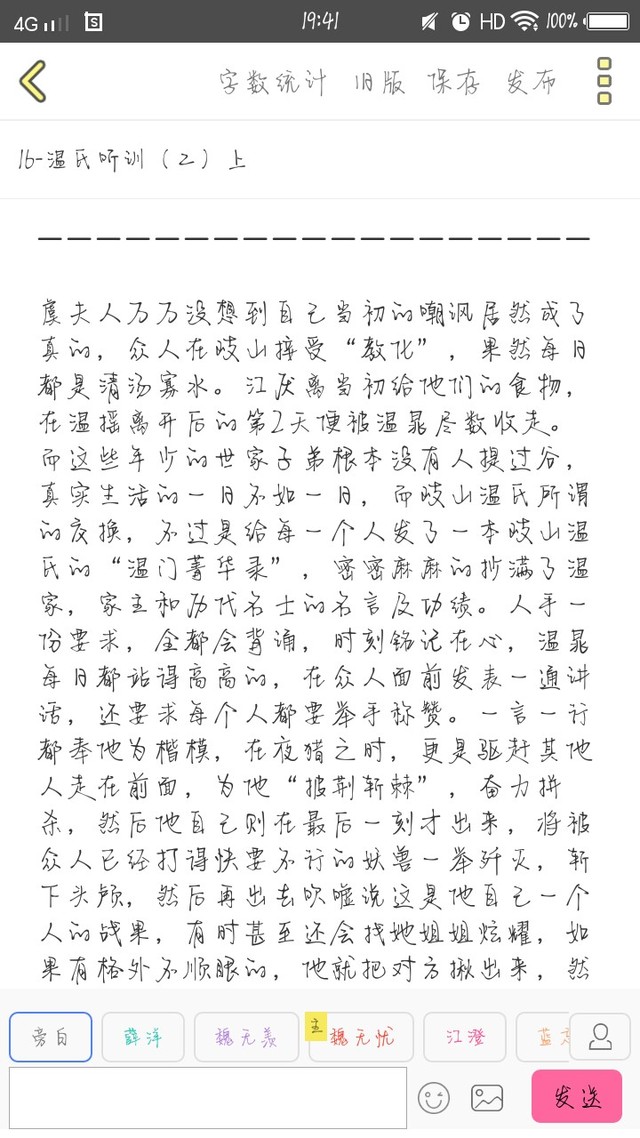 4G 19:41 HD 100%
字数统计 旧版 保存 发布
16-温氏听训（2）上
虞夫人万万没想到自己当初的嘲讽居然成了
真的，众人在岐山接受“教化”，果然每日
都是清汤寡水。江厌离当初给他们的食物，
在温摇离开后的第2天便被温晁尽数收走。
而这些年少的世家子弟根本没有人提过谷，
真实生活的一日不如一日，而岐山温氏所谓
的友换，不过是给每一个人发了一本岐山温
氏的“温门菁华录”，密密麻麻的抄满了温
家，家主和历代名士的名言及功绩。人手一
份要求，全都会背诵，时刻铭记在心，温晁
每日都站得高高的，在众人面前发表一通讲
话，还要求每个人都要举手称赞。一言一行
都奉他为楷模，在夜猎之时，更是驱赶其他
人走在前面，为他“披荆斩棘”，奋力拼
杀，然后他自己则在最后一刻才出来，将被
众人已经打得快要不行的妖兽一举歼灭，斩
下头颅，然后再出去吹嘘说这是他自己一个
人的战果，有时甚至还会找她姐姐炫耀，如
果有格外不顺眼的，他就把对方揪出来，然
旁白 薛洋 魏无羡 主 魏无忧 江澄 蓝
发送